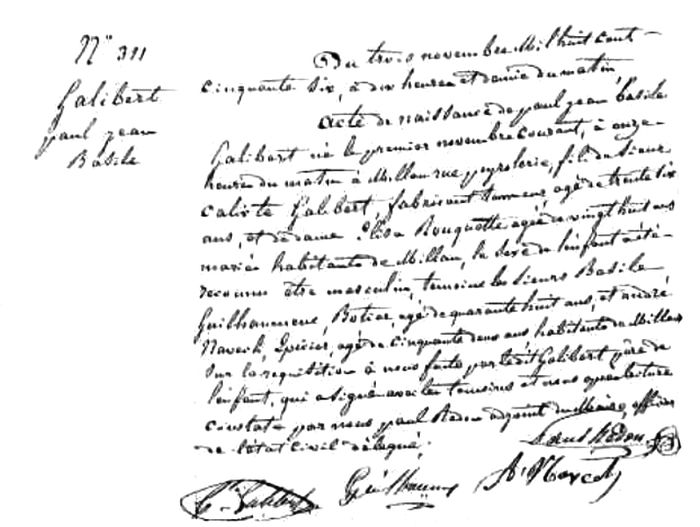 N° 311
Galibert
paul jean
Basile
Du trois novembre Mil huit cent
cinquante six, à dix heures et demie du matin,
acte de naissance de paul jean basile
Galibert né le premier novembre courant, à onze
heures du matin à Millau rue peyrolerie, fils du Sieur
calixte Galibert, fabricant tanneur, agé de trente six
ans, et de dame Elisa Rouquette agée de vingt huit ans
mariés habitants de Millau, le sexe de l'enfant a été
reconnu être masculin, temoins les sieurs Basile
Guilhaumenc, Botier, agé de quarante huit ans, et andré
Navech, Epicier, agé de cinquante deux ans habitants de Millau
Sur la requisition à nous faite par ledit Galibert père de
l'enfant, qui a signé avec les temoins et nous après lecture
Constaté par nous paul Redon adjoint du Maire, officier
de l'état civil délégué,
Paul Redon
Galibert Guilhaumenc